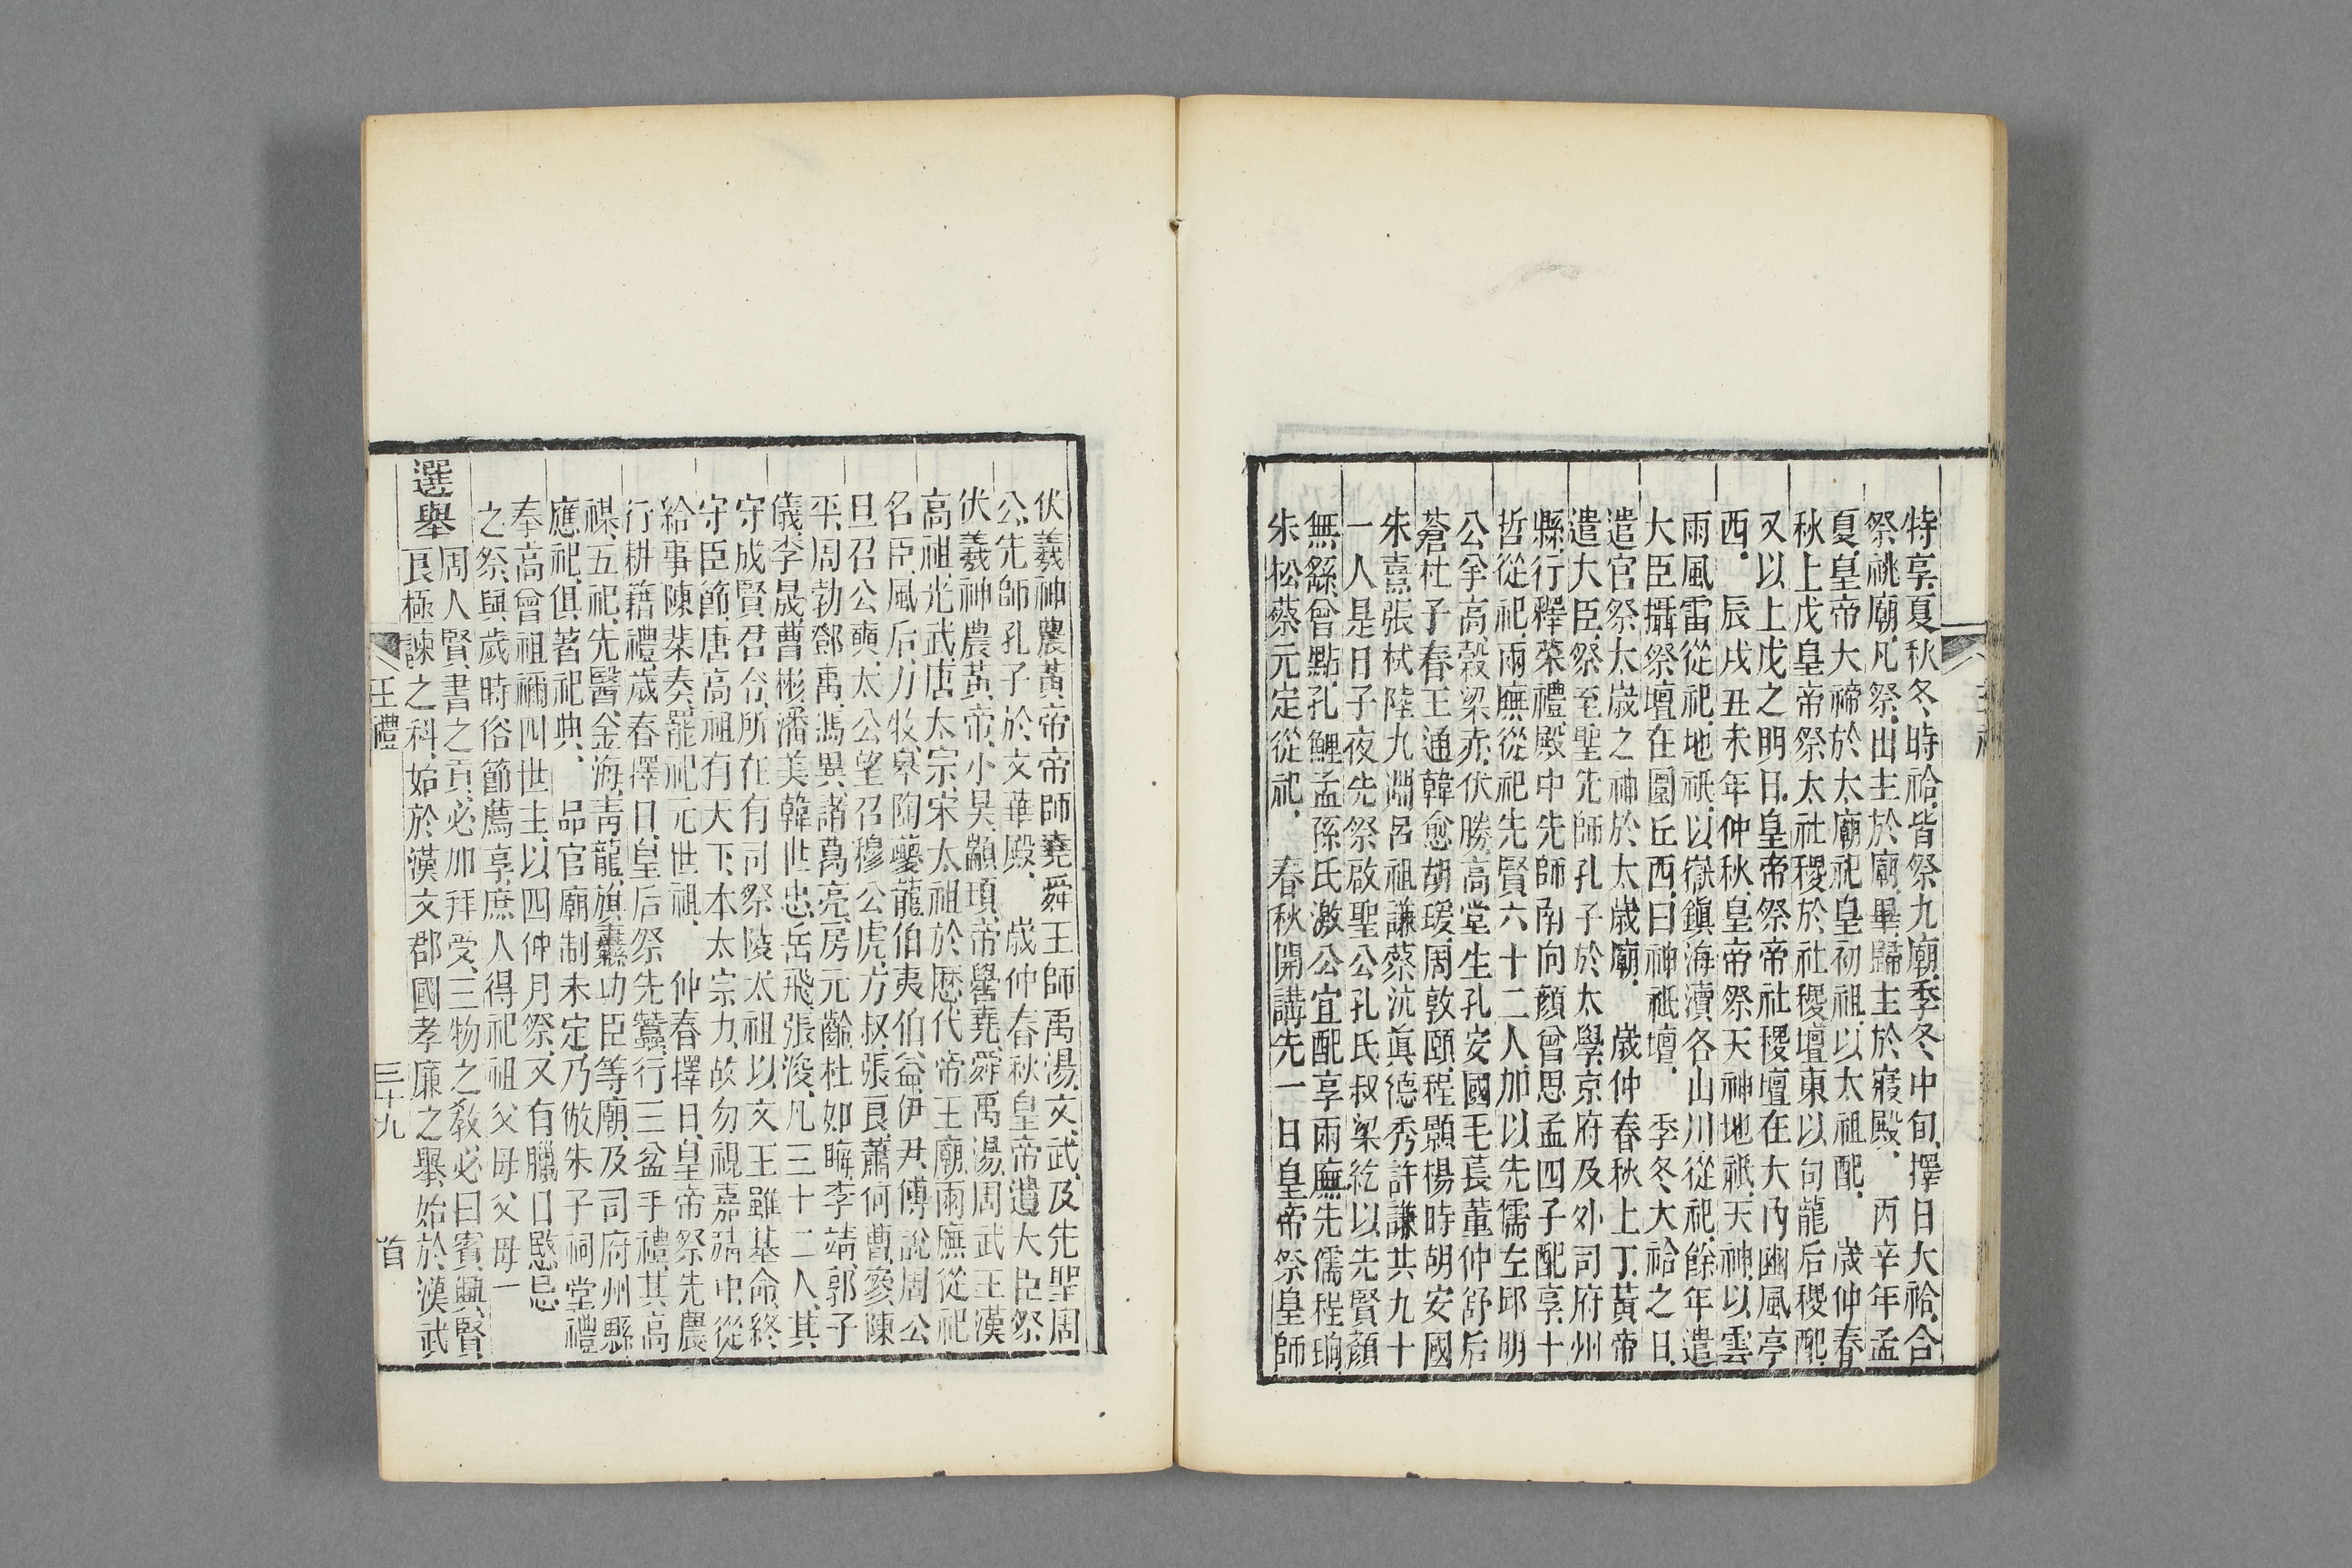 特享夏秋冬時祫皆祭九廟季冬中旬擇日大祫合
祭祧廟凡祭出主於廟畢歸主於寢殿丙辛年孟
夏皇帝大禘於太廟祀皇初祖以太祖配歲仲春
秋上戊皇帝祭太社稷於社稷壇東以句龍后稷配
又以上戊之明日皇帝祭帝社稷壇在大內豳風亭
西辰戌丑未年仲秋皇帝祭天神地祇天神以雲
雨風雷從祀地祇以嶽鎭海瀆各山川從祀餘年遣
大臣攝祭壇在圜丘西曰神祇壇季冬大祫之日
遣官祭太歲之神於太歲廟歲仲春秋上丁黃帝
遣大臣祭至聖先師孔子於太學京府及外司府州
縣行釋菜禮殿中先師南向顏曾思孟四子配享十
哲從祀兩廡從祀先賢六十二人加以先儒左邱明
公羊高穀梁赤伏勝高堂生孔安國毛萇董仲舒后
蒼杜子春王通韓愈胡瑗周敦頤程顥楊時胡安國
朱熹張栻陸九淵呂祖謙蔡沆眞德秀許謙共九十
一人是日子夜先祭啟聖公孔氏叔梁紇以先賢顏
無繇曾點孔鯉孟孫氏激公宜配享兩廡先儒程珦
朱松蔡元定從祀春秋開講先一日皇帝祭皇師
伏羲神農黃帝帝師堯舜王師禹湯文武及先聖周
公先師孔子於文華殿歲仲春秋皇帝遣大臣祭
伏羲神農黃帝小昊顓頊帝嚳堯舜禹湯周武王漢
高祖光武唐太宗宋太祖於歷代帝王廟兩廡從祀
名臣風后力牧皋陶夔龍伯夷伯益伊尹傅說周公
旦召公奭太公望召穆公虎方叔張良蕭何曹參陳
平周勃鄧禹馮異諸葛亮房元齡杜如晦李靖郭子
儀李晟曹彬潘美韓世忠岳飛張浚凡三十二人其
守成賢君令所在有司祭陵太祖以文王雖基命終
守臣節唐高祖有天下本太宗力故勿視嘉靖中從
給事陳棐奏罷祀元世祖仲春擇日皇帝祭先農
行耕籍禮歲春擇日皇后祭先蠶行三盆手禮其高
禖五祀先醫金海靑龍旗纛功臣等廟及司府州縣
應祀俱著祀典品官廟制未定乃倣朱子祠堂禮
奉高曾祖禰四世主以四仲月祭又有臘日愍忌
之祭與歲時俗節薦享庶人得祀祖父母父母一
選舉
周人賢書之貢必加拜受三物之教必曰賓興賢
良極諫之科始於漢文郡國孝廉之舉始於漢武
王禮
三十九
首